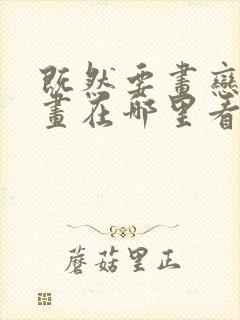 既然要畫戀
畫在哪里看
蘑菇里正